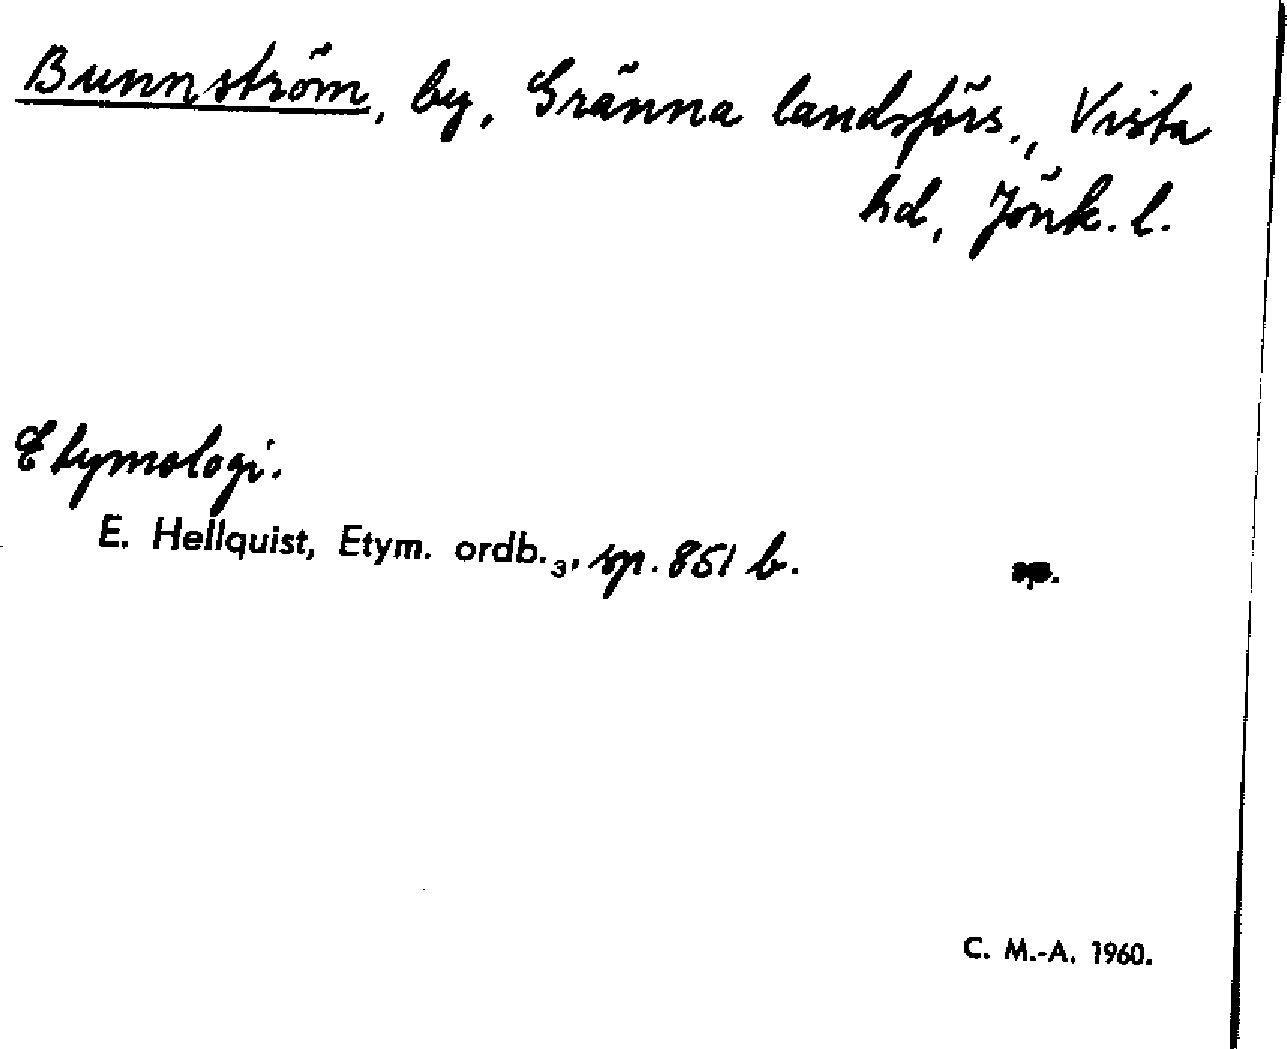 Bunnström, by, Gränna landsförs., Vista
hd, Jönk. l.
Etymologi.
E. Hellquist, Etym. ordb.₃, sp. 851 b.
C. M.-A. 1960.